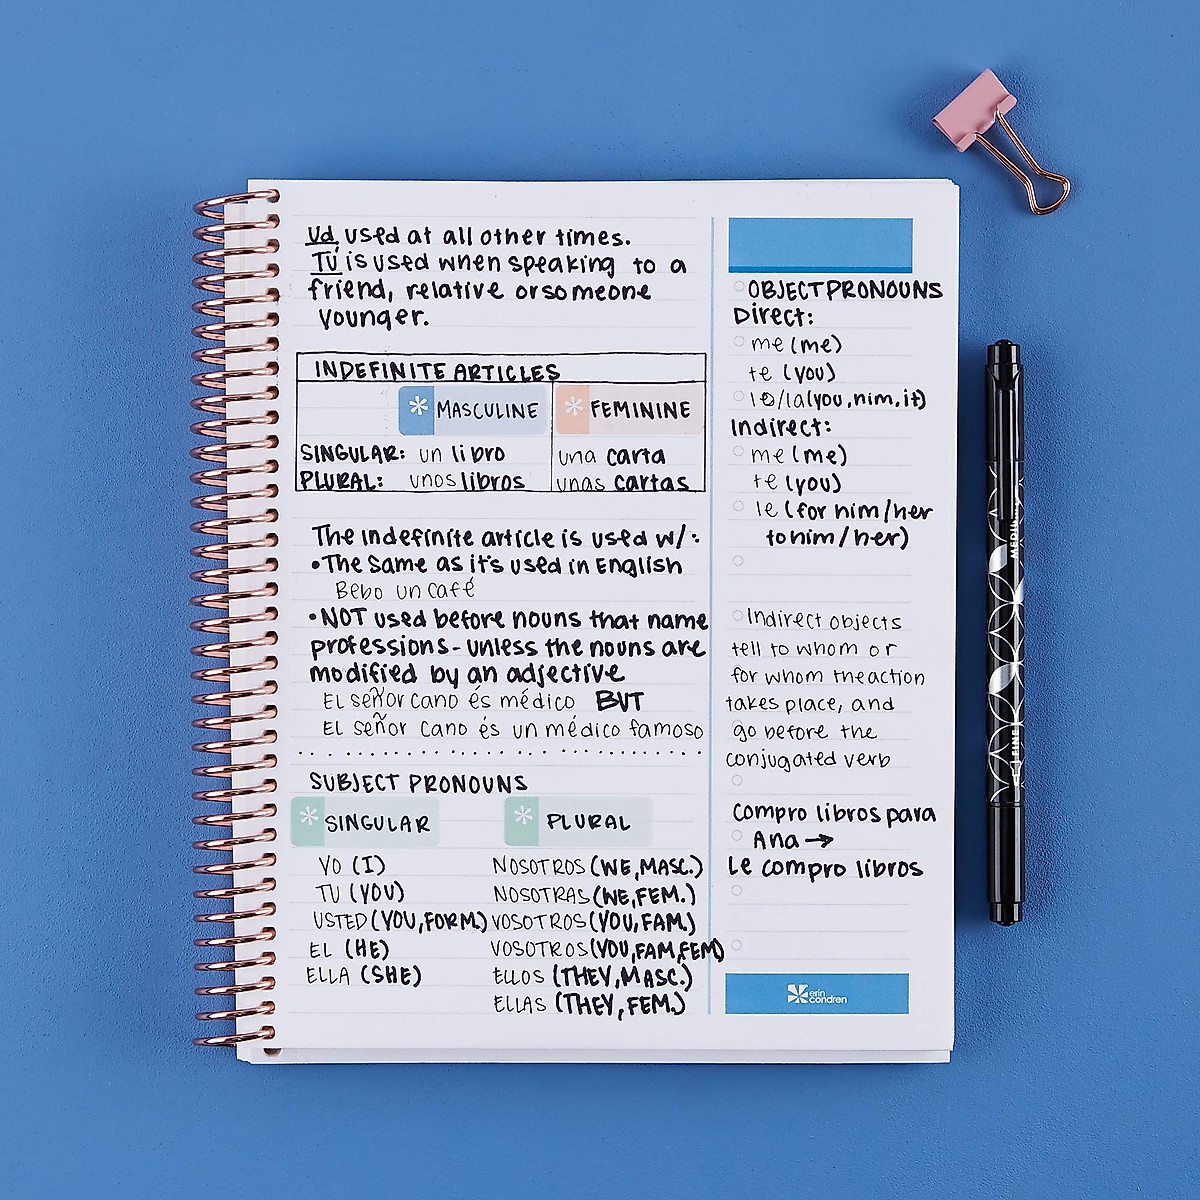 Vd. used at all other times.
TÚ is used when speaking to a
friend, relative or someone
younger.
INDEFINITE ARTICLES
MASCULINE FEMININE
SINGULAR: un libro una carta
PLURAL: unos libros unas cartas
The indefinite article is used w/:
•The same as it's used in English
Bebo un café
•NOT used before nouns that name
professions - unless the nouns are
modified by an adjective
EL señor cano és médico BUT
EL señor cano és un médico famoso
SUBJECT PRONOUNS
SINGULAR PLURAL
YO (I) NOSOTROS (WE, MASC.)
TU (YOU) NOSOTRAS (WE, FEM.)
USTED (YOU, FORM.) VOSOTROS (YOU, FAM.)
EL (HE) VOSOTROS (YOU, FAM, FEM)
ELLA (SHE) ELLOS (THEY, MASC.)
ELLAS (THEY, FEM.)
OBJECT PRONOUNS
Direct:
me (me)
te (you)
lo/la (you, him, it)
Indirect:
me (me)
te (you)
le (for him/her
to him/her)
Indirect objects
tell to whom or
for whom the action
takes place, and
go before the
conjugated verb
Compro libros para
Ana →
Le compro libros
erin
condren
MEDIUM
FINE